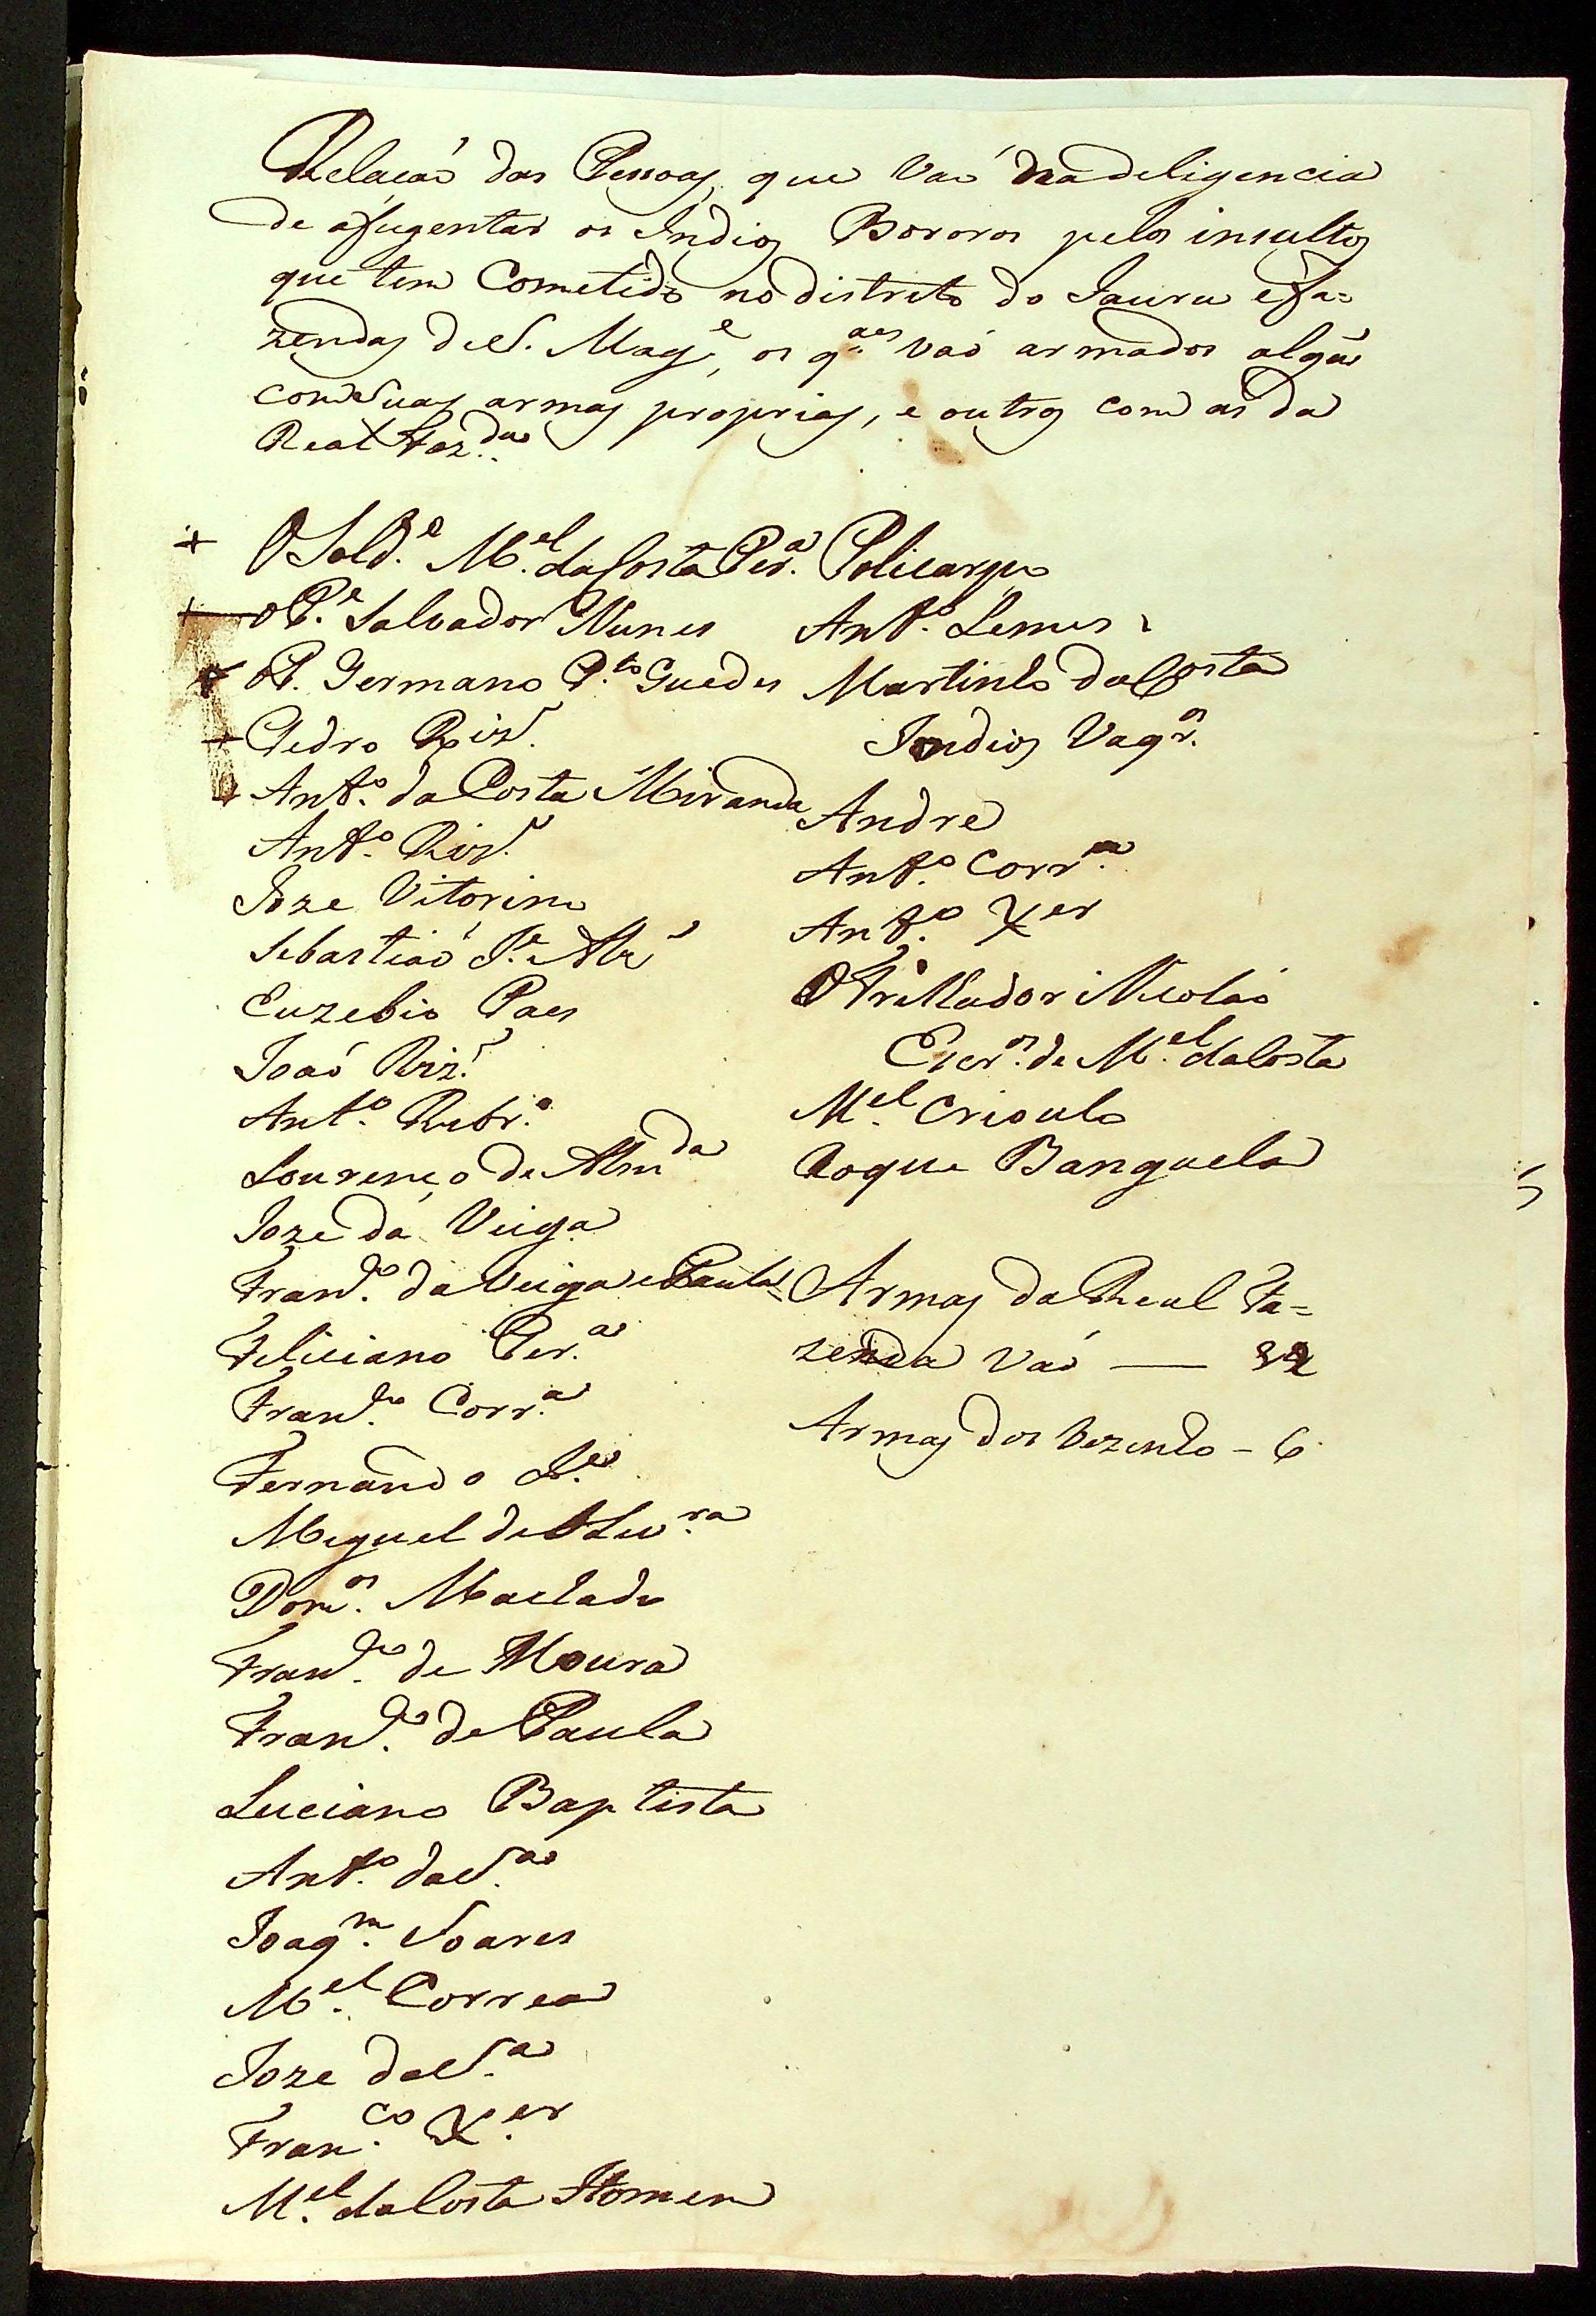 Relação das Pessoas, que Vaó na deligencia
de afugentar os Indios Bororos pelos insultos
que tem Cometido no distreto do Jauru e fa=
zendas de S. Mag.e, os q.aes vaó armados algũs
com suas armas proprias, e outros com as da
Real Faz.da
+ O Sold.e M.el da Costa Per.a
+ o P.e Salvador Nunes
+ O P. Germano P.to Guedes
+ Pedro Roiz.
+ Ant.o da Costa Miranda
Ant.o Roiz.
Joze Vitorino
Sebastiaó J.e
Euzebio Paes
Joaó Roiz.
Ant.o Ribr.o
Lourenço de Alm.da
Joze da Veiga
Fran.co da Veiga e Paula
Feliciano Per.a
Fran.co Corr.a
Fernando
Miguel de Oliv.ra
Dom.os Machado
Fran.co de Moura
Fran.co de Paula
Luciano Baptista
Ant.o da S.a
Joaq.m Soares
M.el Correa
Joze da S.a
Fran.co X.er
M.el da Costa Homem
Policarpo
Ant.o Lemes
Martinho da Costa
Indios Vag.os
Andre
Ant.o Corr.a
Ant.o X.er
O Trilhador Nicoláo
Escr.os de M.el da Costa
M.el Crioulo
Roque Banguela
Armas da Real Fa=
zenda Vaó —
Armas dos Vezinho - 6